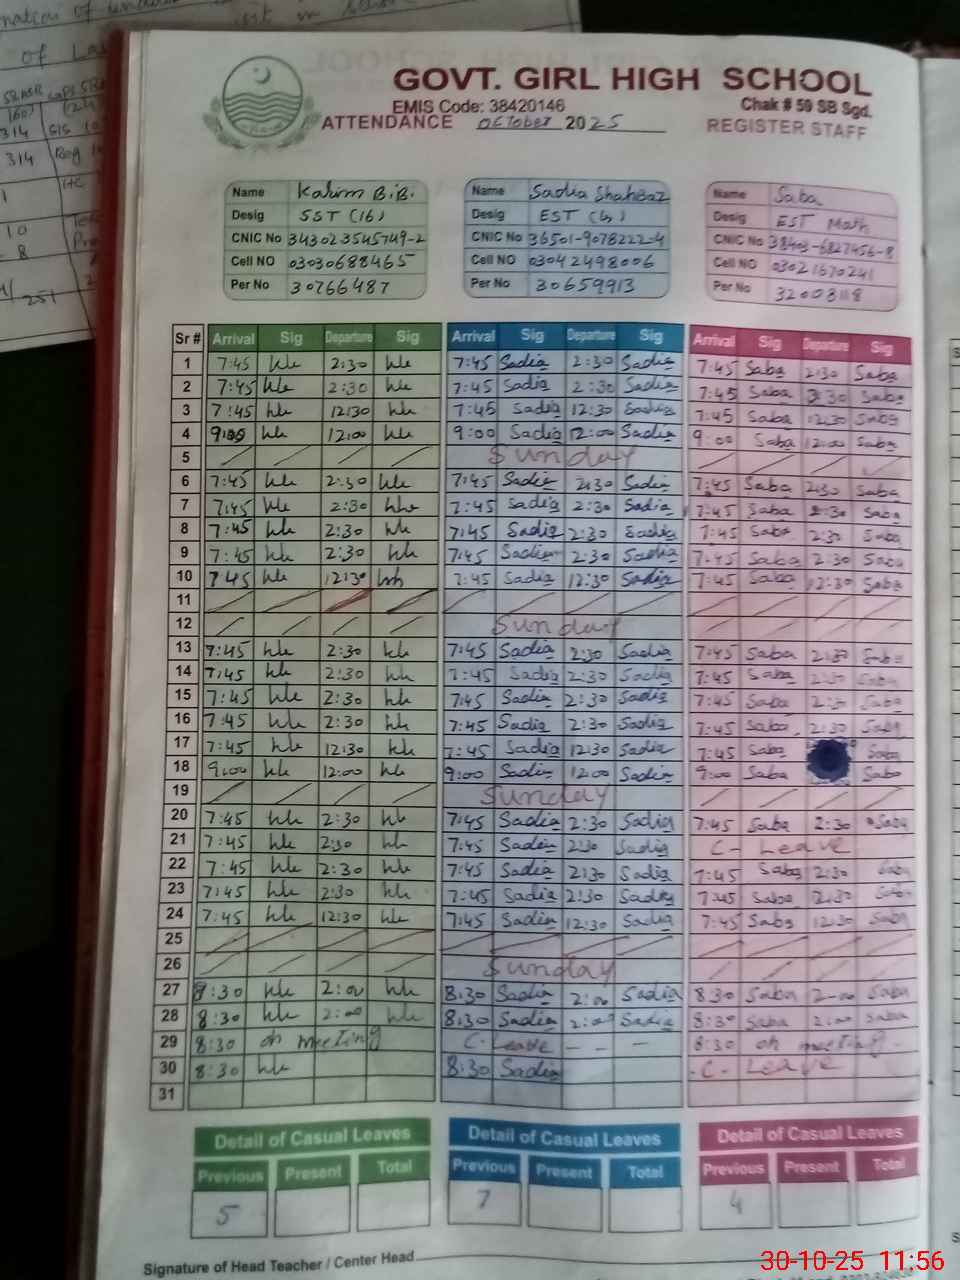 of
GOVT. GIRL HIGH SCHOOL
EMIS Code: 38420146
Chak # 59 SB Sgd.
ATTENDANCE October 2025 REGISTER STAFF
Name Kalsum BiBi Name Sadia Shahbaz Name Saba
Desig SST (16) Desig EST Desig EST Math
CNIC No 343023545749-2 CNIC No 36501-9078222-4 CNIC No 38403-6827456-8
Cell NO 03030688465 Cell NO 03042498006 Cell NO 03021670241
Per No 30766487 Per No 30659913 Per No 32003118
Sr # Arrival Sig Departure Sig Arrival Sig Departure Sig Arrival Sig Departure Sig
1 7:45 2:30 7:45 Sadia 2:30 Sadia 7:45 Saba 2:30 Saba
2 7:45 2:30 7:45 Sadia 2:30 Sadia 7:45 Saba 2:30 Saba
3 7:45 12:30 7:45 Sadia 12:30 Sadia 7:45 Saba 12:30 Saba
4 9:00 12:00 9:00 Sadia 12:00 Sadia 9:00 Saba 12:00 Saba
5 Sunday
6 7:45 2:30 7:45 Sadia 2:30 Sadia 7:45 Saba 2:30 Saba
7 7:45 2:30 7:45 Sadia 2:30 Sadia 7:45 Saba 2:30 Saba
8 7:45 2:30 7:45 Sadia 2:30 Sadia 7:45 Saba 2:30 Saba
9 7:45 2:30 7:45 Sadia 2:30 Sadia 7:45 Saba 2:30 Saba
10 7:45 12:30 7:45 Sadia 12:30 Sadia 7:45 Saba 12:30 Saba
11
12 Sunday
13 7:45 2:30 7:45 Sadia 2:30 Sadia 7:45 Saba 2:30 Saba
14 7:45 2:30 7:45 Sadia 2:30 Sadia 7:45 Saba 2:30 Saba
15 7:45 2:30 7:45 Sadia 2:30 Sadia 7:45 Saba 2:30 Saba
16 7:45 2:30 7:45 Sadia 2:30 Sadia 7:45 Saba 2:30 Saba
17 7:45 12:30 7:45 Sadia 12:30 Sadia 7:45 Saba Saba
18 9:00 12:00 9:00 Sadia 12:00 Sadia 9:00 Saba Saba
19 Sunday
20 7:45 2:30 7:45 Sadia 2:30 Sadia 7:45 Saba 2:30 Saba
21 7:45 2:30 7:45 Sadia 2:30 Sadia C- Leave
22 7:45 2:30 7:45 Sadia 2:30 Sadia 7:45 Saba 2:30 Saba
23 7:45 2:30 7:45 Sadia 2:30 Sadia 7:45 Saba 2:30 Saba
24 7:45 12:30 7:45 Sadia 12:30 Sadia 7:45 Saba 12:30 Saba
25
26 Sunday
27 8:30 2:00 8:30 Sadia 2:00 Sadia 8:30 Saba 2:00 Saba
28 8:30 2:00 8:30 Sadia 2:00 Sadia 8:30 Saba 2:00 Saba
29 8:30 on meeting C- Leave - - 8:30 on meeting -
30 8:30 8:30 Sadia -C- Leave
31
Detail of Casual Leaves Detail of Casual Leaves Detail of Casual Leaves
Previous Present Total Previous Present Total Previous Present Total
5 7 4
Signature of Head Teacher / Center Head
30-10-25 11:56